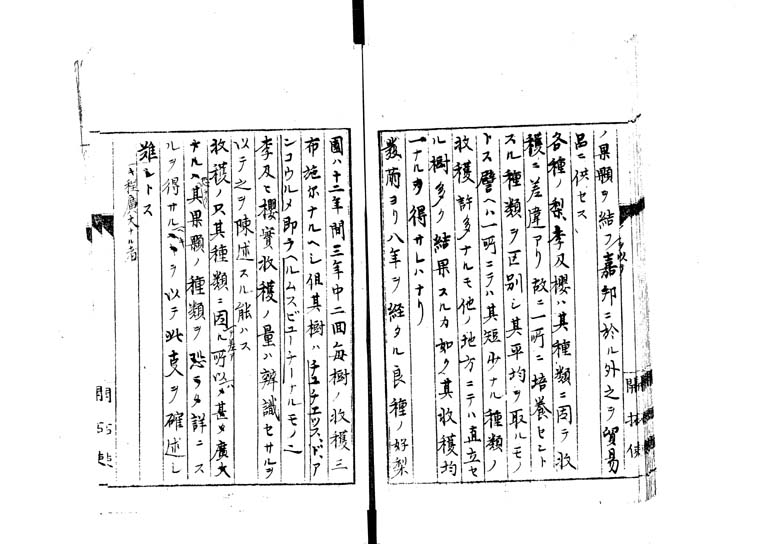 ノ果顆ヲ結フ嘉邦ニ於ル外之ヲ貿易
品ニ供セス
各種ノ梨李及櫻ハ其種類ニ因テ收
穫ニ差違アリ故ニ一所ニ培養セント
スル種類ヲ区別シ其平均ヲ取ルモノ
トス譬ヘハ一所ニテハ其短少ナル種類ノ
收穫許多ナルモ他ノ地方ニテハ直立セ
ル樹多ク結果スルカ如ク其收穫均
一ナルヲ得サレハナリ
発雨ヨリ八年ヲ経タル良種ノ好梨
開拓使
園ハ十二年間三年中二回毎樹ノ收穫三
布施尓ナルヘシ但其樹ハチユチエツス、ド、ア
ンコウルメ即ヂヘルムスビユーチーナルモノニ
李及ヒ櫻實收穫ノ量ハ辨識セサルヲ
以テ之ヲ陳述スル能ハス
收穫ノ只其種類ニ因ル所以甚タ廣大
ナル其果顆ノ種類ヲ恐ラク詳ニス
ルヲ得サル ヲ以テ此支ヲ確述シ
難シトス
開拓使